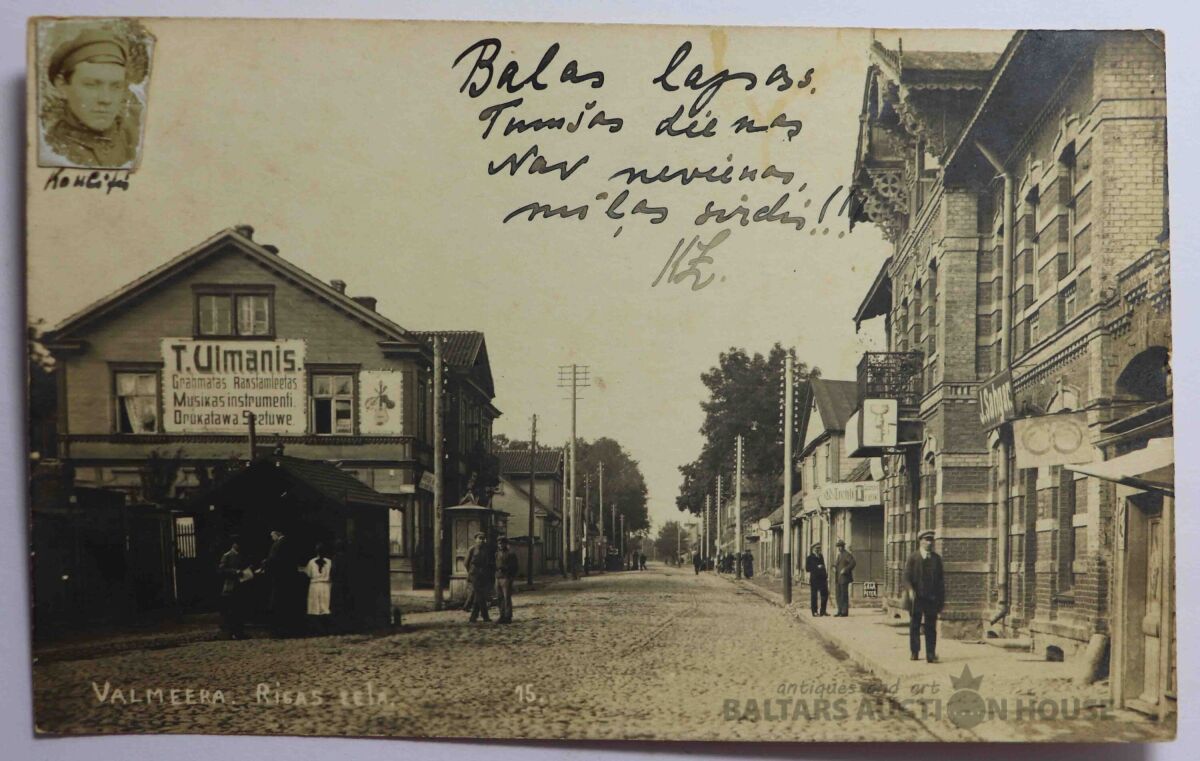 Balas lapas.
Tumšas dienas
Nav nevienas,
mīļas sirdis!!
KZ.
T. Ulmanis.
Grahmatas Rakstamleetas
Musikas instrumenti.
Drukatawa Seetuwe.
VALMEERA. RIGAS eela.
15.
antiques and art
BALTARS AUCTION HOUSE